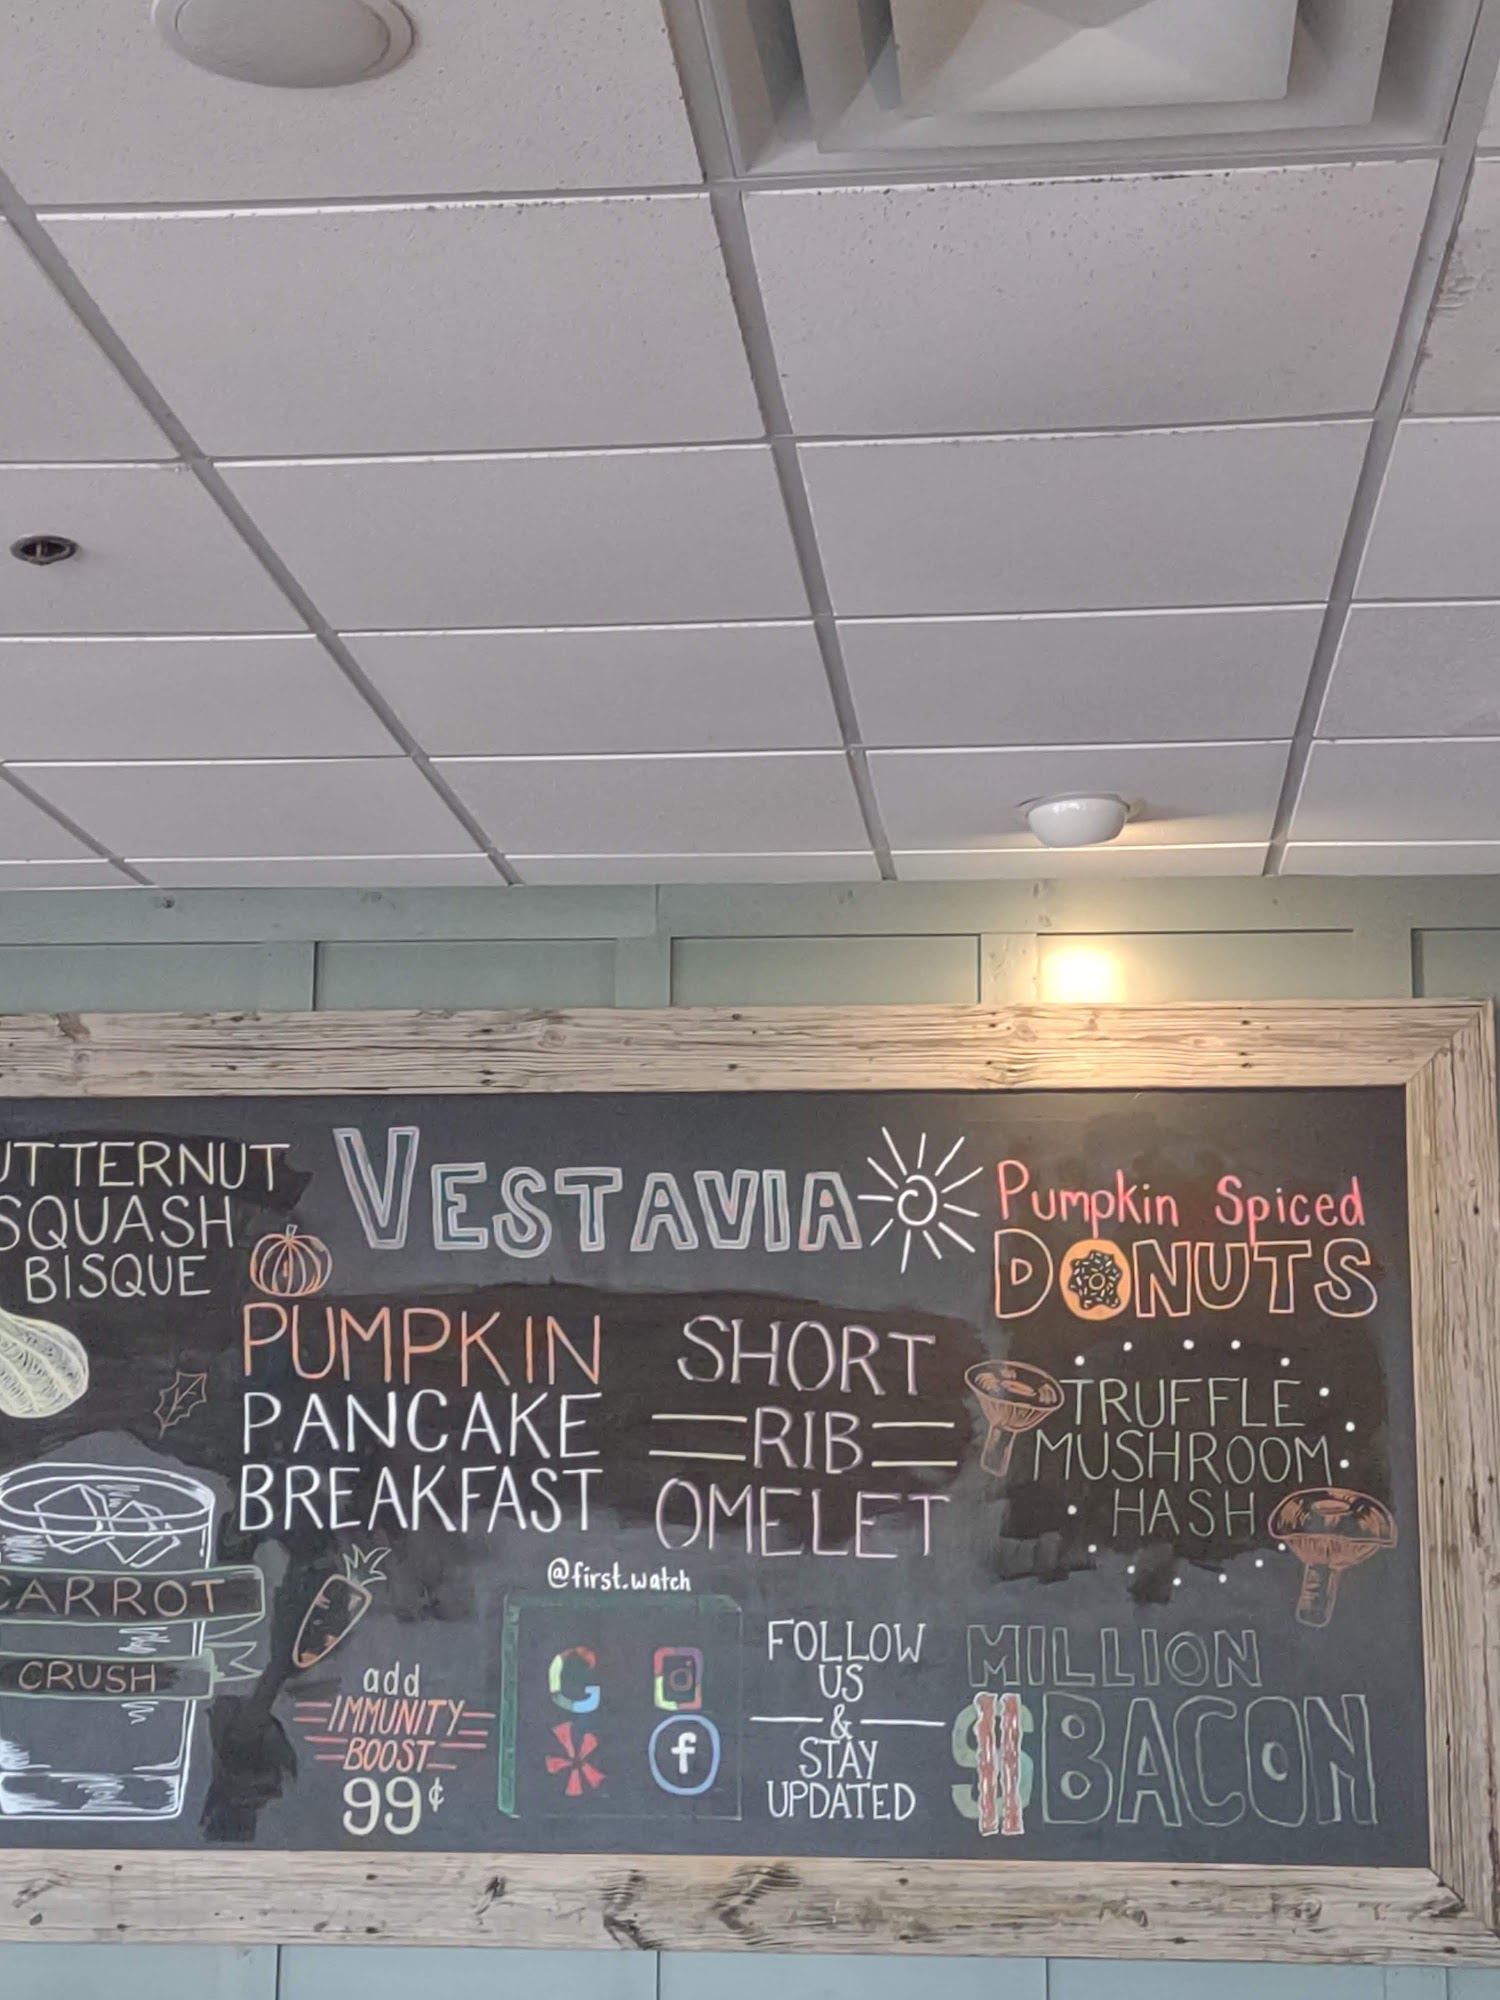 UTTERNUT
SQUASH
BISQUE
CARROT
CRUSH
VESTAVIA
PUMPKIN
PANCAKE
BREAKFAST
add
IMMUNITY
BOOST
99¢
SHORT
RIB
OMELET
@first.watch
G
f
FOLLOW
US
&
STAY
UPDATED
Pumpkin Spiced
DONUTS
TRUFFLE
MUSHROOM
HASH
MILLION
$BACON